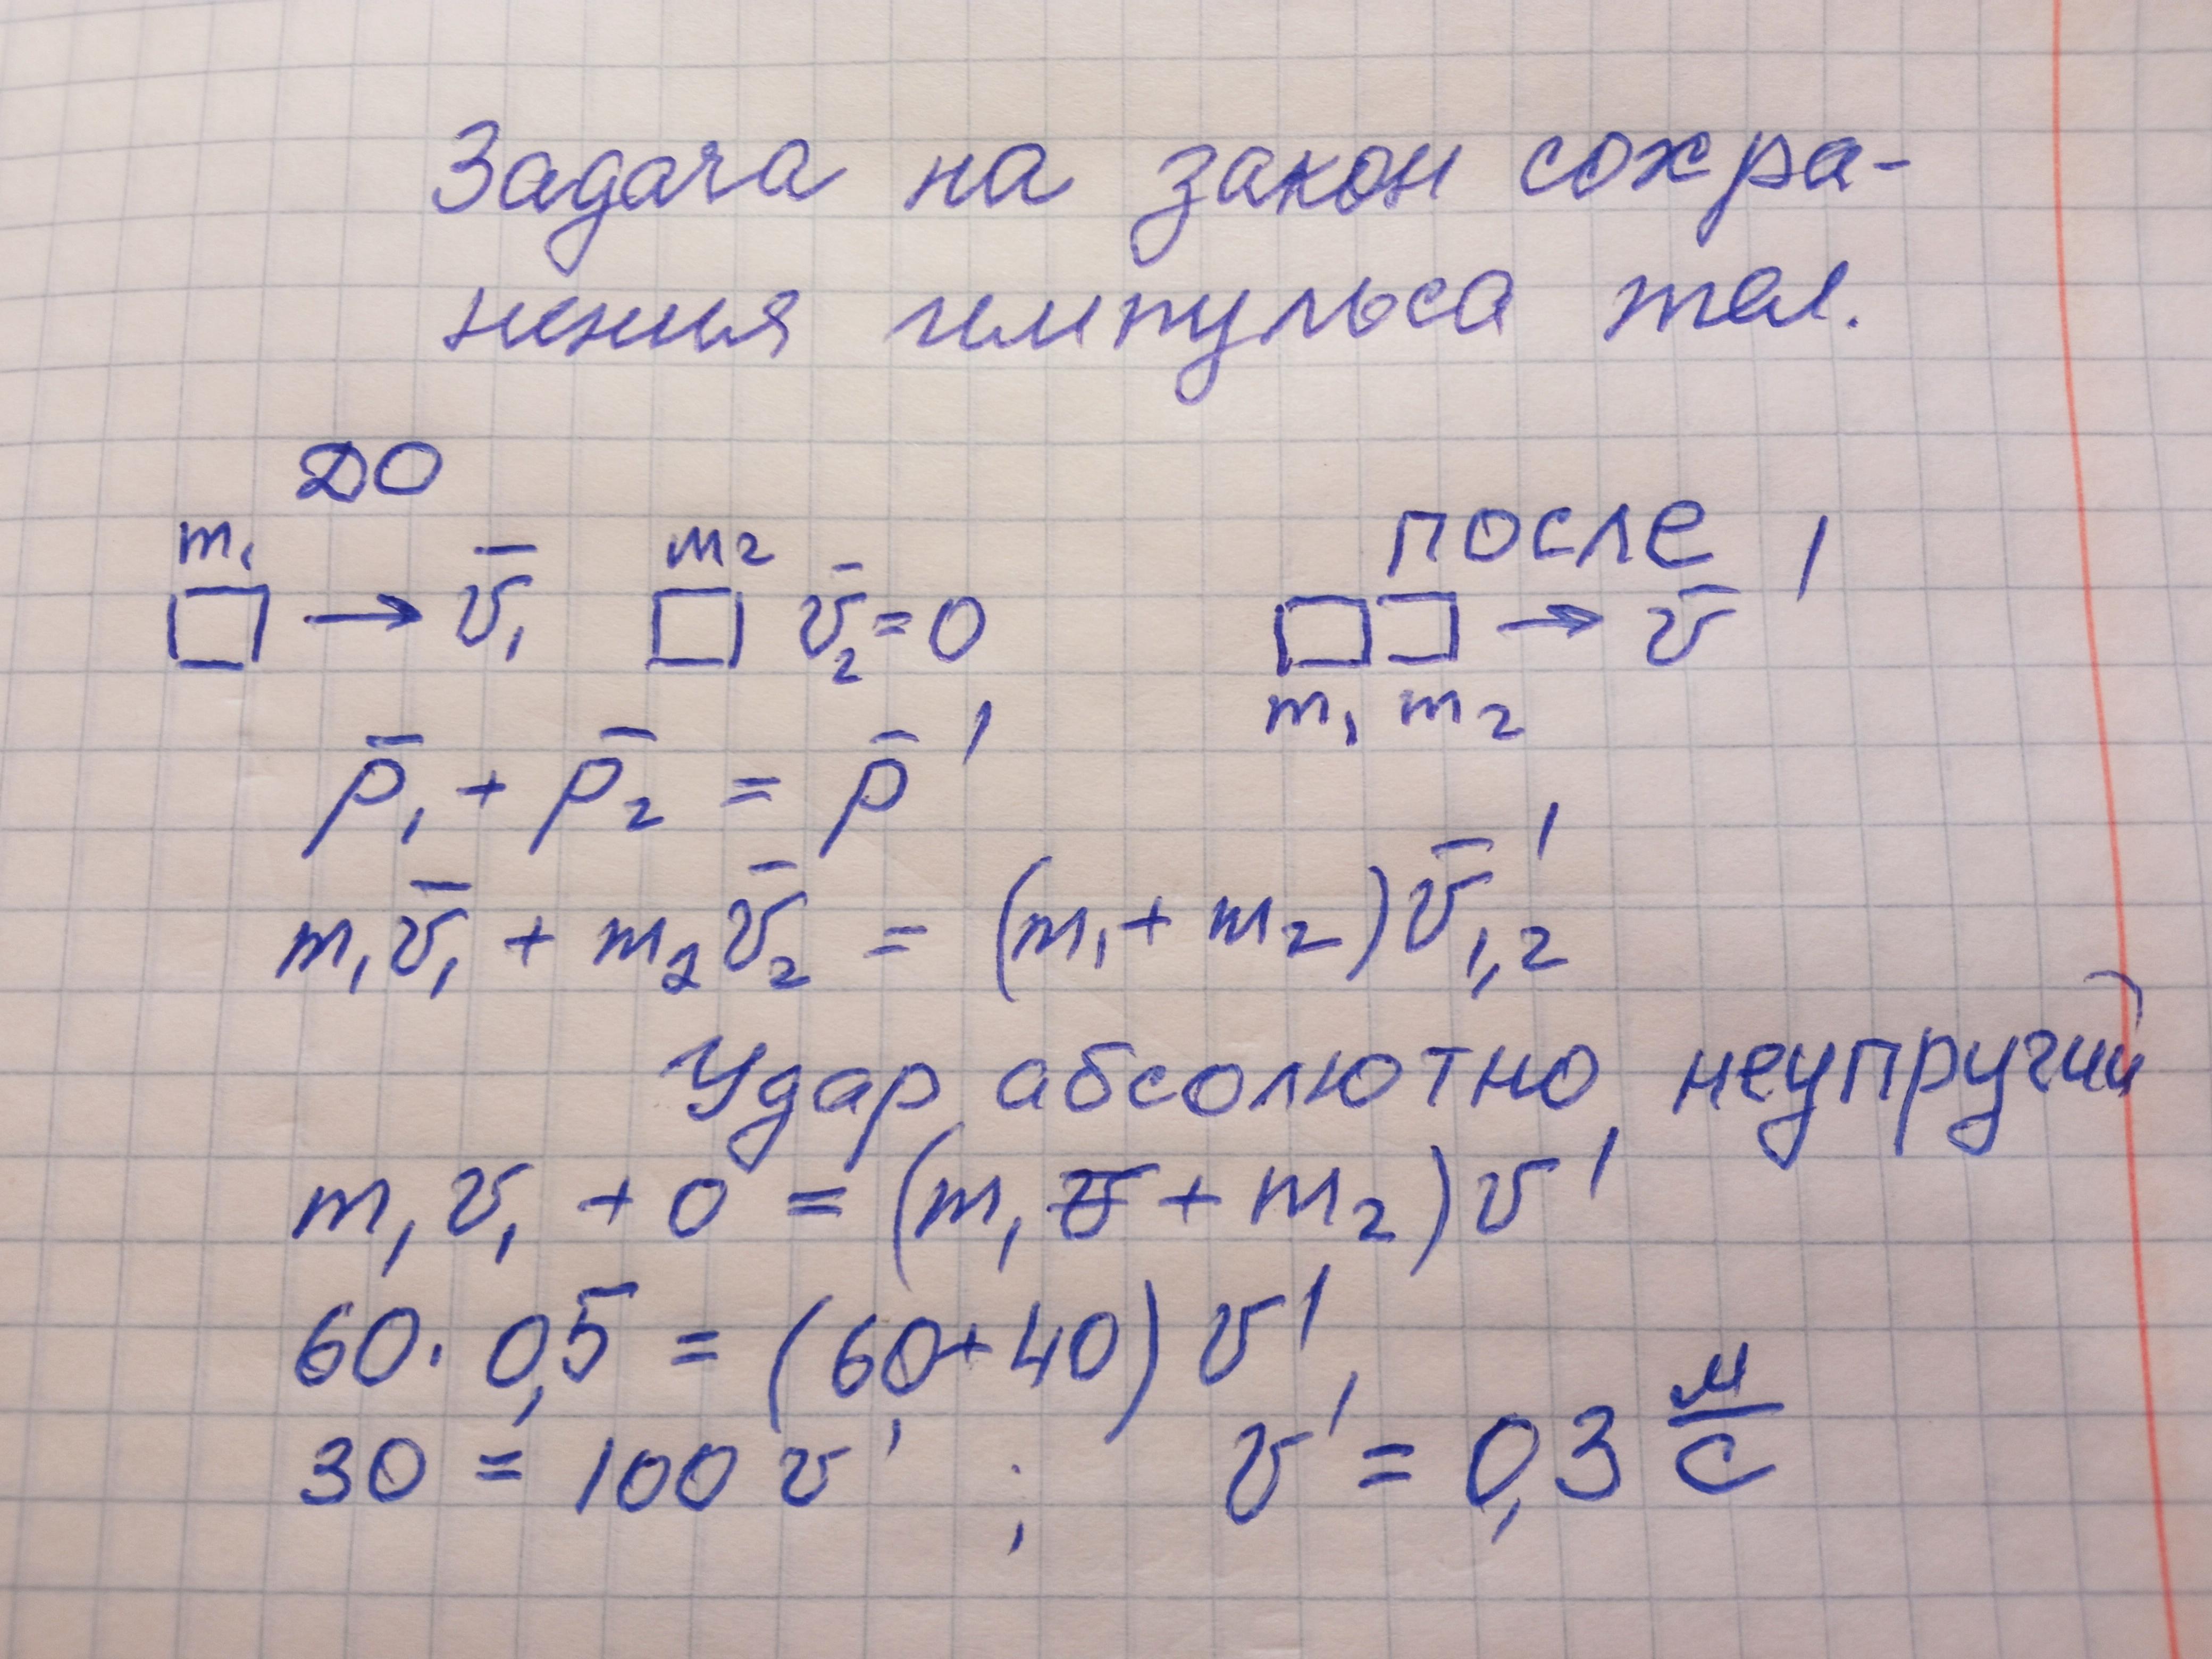 Задача на закон сохра-
нения импульса тел.
ДО
после
m₁ → v̅₁ m₂ v̅₂ = 0
→ v̅'
m₁ m₂
p̅₁ + p̅₂ = p̅'
m₁v̅₁ + m₂v̅₂ = (m₁ + m₂)v̅'₁,₂
Удар абсолютно неупругий
m₁v₁ + 0 = (m₁ + m₂)v'
60 · 0,5 = (60 + 40) v',
30 = 100 v' ; v' = 0,3 м/с